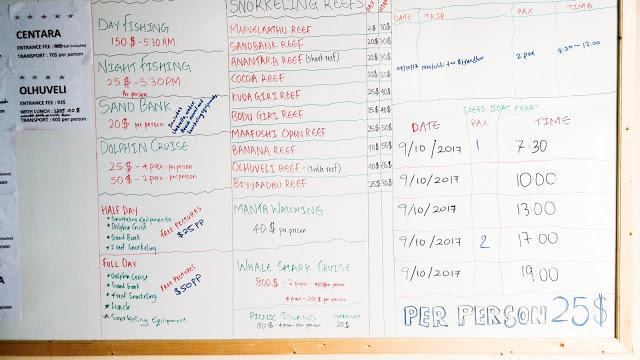 CENTARA
ENTRANCE FEE :
TRANSPORT : 70$ per person
OLHUVELI
ENTRANCE FEE : 93$
WITH LUNCH :
TRANSPORT : 60$ per person
DAY FISHING
150 $ - 5:30 AM
NIGHT FISHING
25 $ - 5:30PM
Per person
SAND BANK
20$ per person
DOLPHIN CRUISE
25 $ - 4 pax - per person
50 $ - 2 pax - per person
HALF DAY
* Snorkeling Equipments
* Dolphin Cruise
* Sand Bank
* 2 reef Snorkeling
free PICTURES
$25PP
FULL DAY
* Dolphin Cruise
* Sand bank
* 4 reef Snorkeling
* Lunch
* Snorkeling Equipment
free Pictures
$50PP
SNORKELING REEFS
MAAVELAATHU REEF
SANDBANK REEF
ANANTARA REEF (Shark reef)
COCOA REEF
KUDA GIRI REEF
BODU GIRI REEF
MAAFUSHI OPEN REEF
BANANA REEF
OLHUVELI REEF - (turtle reef)
BIYYAADHU REEF
MANTA WATCHING
40 $ per person
WHALE SHARK CRUISE
800$ - 2 pax -
4 pax - 200 $ per person
PICNIC ISLAND
80$ - 4 pax - per person
20$
DATE TRIP PAX TIME
2 pax
8:30 - 17:00
SPEED BOAT FERRY
DATE PAX TIME
9/10/2017 1 7:30
9/10/2017 10:00
9/10/2017 13:00
9/10/2017 2 17:00
9/10/2017 19:00
PER PERSON 25$